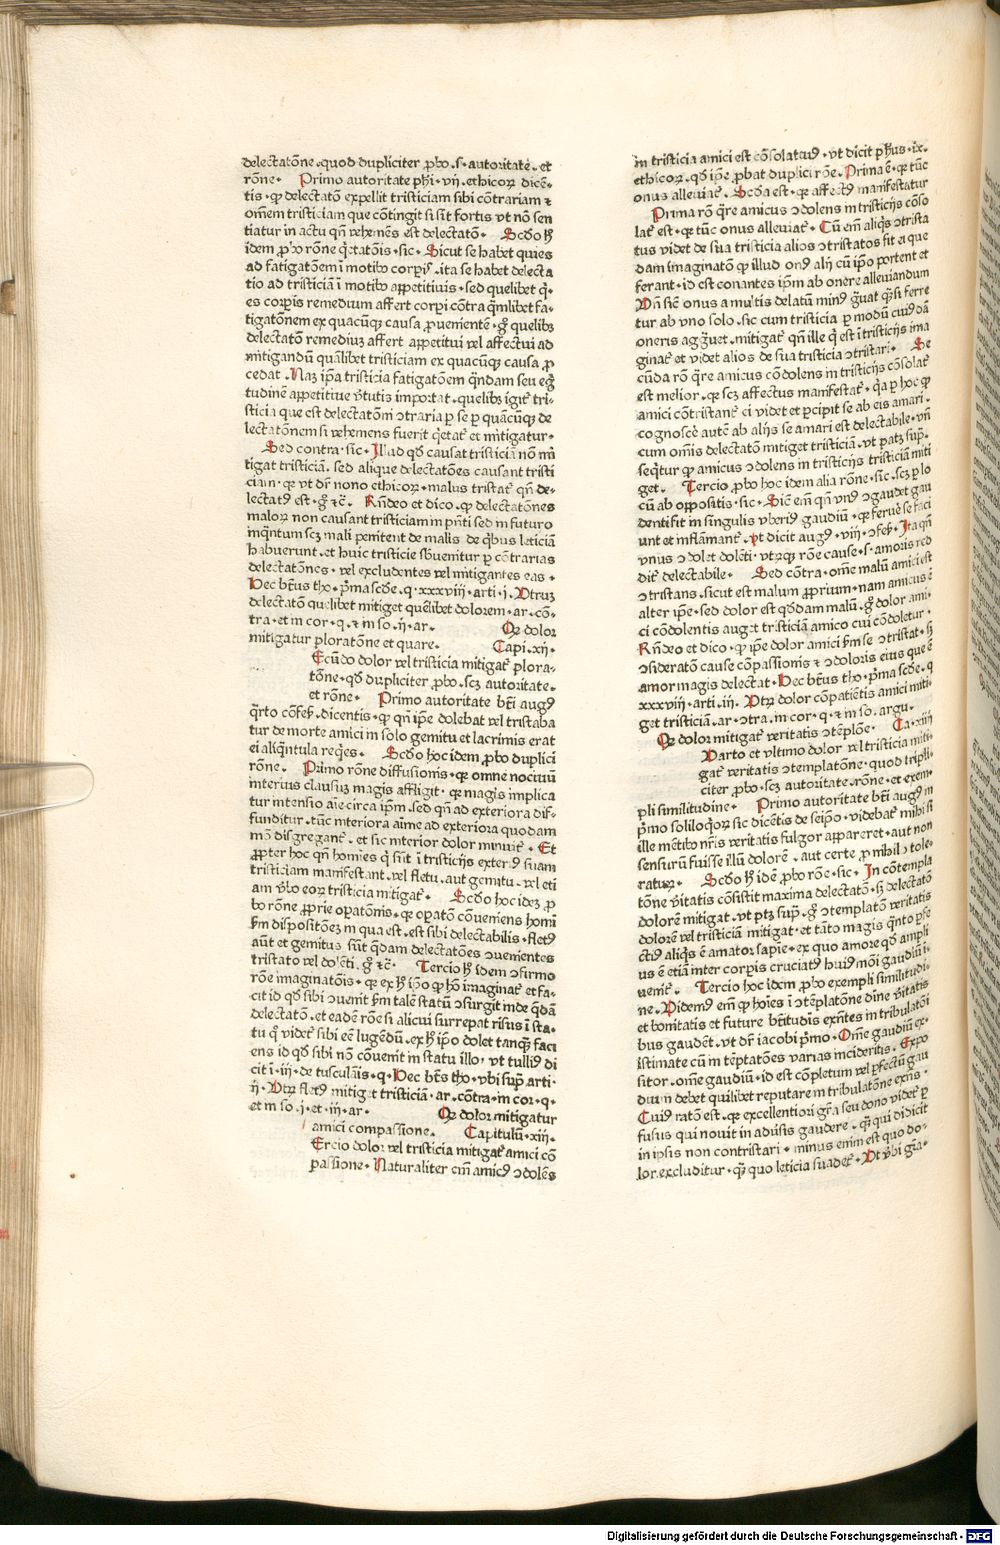 delectatōne . quod dupliciter ꝓbo . s . autoritate . et
rōne . Primo autoritate phi . vij . ethicoꝝ dicē-
tis . ꝙ delectatō expellit tristiciam sibi cōtrariam ⁊
om̄em tristiciam que cōtingit si sit fortis vt nō sen
tiatur in actu qn̄ vehemēs est delectatō . Scd̄o h̄
idem ꝓbo rōne q̇etatōis . sic . Sicut se habet quies
ad fatigatōem ī motibo corpis . ita se habet delecta
tio ad tristiciā ī motibo appetitiuis . sed quelibet q̇-
es corpis remedium affert corpi cōtra q̄mlibet fa-
tigatōnem ex quacūqꝫ causa ꝓuenientē . gͦ quelibꝫ
delectatō remediuꝫ affert appetitui vel affectui ad
mitigandū qualibet tristiciam ex quacūqꝫ causa ꝓ
cedat . Naꝫ ip̄a tristicia fatigatōem q̄ndam seu eg̓
tudinē appetitiue v̓tutis importat . quelibꝫ igit̄ tri-
sticia que est delectatōni ↄtraria ꝑ se ꝑ quacūqꝫ de
lectatōnem si vehemens fuerit q̇etat̄ et mitigatur .
Sed contra . sic . Illud qd̄ causat tristiciā nō mi
tigat tristiciā . sed alique delectatōes causant tristi
ciam . qꝛ vt dr̄ nono ethicoꝝ . malus tristat̄ qn̄ de-
lectatꝰ est . gͦ ⁊c̄ . Rn̄deo et dico . ꝙ delectatōnes
maloꝝ non causant tristiciam in pn̄ti sed in futuro
inq̄ntum scꝫ mali penitent de malis de qͥbus leticiā
habuerunt . et huic tristicie sb̄uenitur ꝑ cōtrarias
delectatōnes . vel excludentes vel mitigantes eas .
Hec bt̄us tho . pͥma scd̄e . q . xxxviij . arti . j . Vtruꝫ
delectatō quelibet mitiget quēlibet dolorem . ar . cō-
tra . et in cor . q . ⁊ in so . ij . ar . Qꝛ dolor
mitigatur ploratōne et quare . Capi . xij .
Ecūdo dolor vel tristicia mitigat̄ plora-
tōne . qd̄ dupliciter ꝓbo . scꝫ autoritate .
et rōne . Primo autoritate bt̄i augꝰ
q̄rto cōfes̄ . dicentis . ꝙ qn̄ ip̄e dolebat vel tristaba
tur de morte amici in solo gemitu et lacrimis erat
ei aliq̄ntula req̇es . Scd̄o hoc idem ꝓbo duplici
rōne . Primo rōne diffusionis . qꝛ omne nociuū
interius clausuꝫ magis affligit . qꝛ magis implica
tur intensio aīe circa ip̄m . sed qn̄ ad exteriora dif-
funditur . tūc interiora aīme ad exteriora quodam
mō disgregant̄ . et sic interior dolor minuit̄ . Et
ꝓpter hoc qn̄ homīes q̇ sūt ī tristicijs exteriꝰ suam
tristiciam manifestant . vel fletu . aut gemitu . vel eti
am v̓bo eoꝝ tristicia mitigat̄ . Scd̄o hoc ideꝫ ꝓ
bo rōne ꝓprie oꝑatōnis . qꝛ oꝑatō cōueniens homī
ẜm dispositōeꝫ in qua est . est sibi delectabilis . fletꝰ
aūt et gemitus sūt q̄dam delectatōes ↄuenientes
tristato vel dolēti . gͦ ⁊c̄ . Tercio h̄ idem ↄfirmo
rōe imaginatōis . qꝛ ex h̄ ip̄o ꝙ hō imaginat̄ et fa-
cit id qd̄ sibi ↄuenit ẜm talē statū ↄsurgit inde q̄dā
delectatō . et eadē rōe si alicui surrepat risus ī sta-
tu q̇ videt̄ sibi eē lugēdū . ex h̄ ip̄o dolet tanqꝫ faci
ens id qd̄ sibi nō cōuenit in statu illo . vt tulliꝰ di
cit ī . iij . de tusculāis . q . Hec bt̄s tho . vbi supͣ arti .
ij . Vtꝝ fletꝰ mitiget tristiciā . ar . cōtra . in cor . q .
et in so . j . et . iij . ar . Qꝛ dolor mitigatur
amici compassione . Capitulū . xiij .
Ercio dolor vel tristicia mitigat̄ amici cō
passione . Naturaliter em̄ amicꝰ ↄdolēs
in tristicia amici est cōsolatiuꝰ . vt dicit ph̄us . ix .
ethicoꝝ . qd̄ ip̄e ꝓbat duplici rōne . Prima ē . qꝛ tūc
onus alleuiat̄ . Scd̄a est . qꝛ affectꝰ manifestatur
Prima rō q̄re amicus ↄdolens in tristicijs cōso
lat̄ est . qꝛ tūc onus alleuiat̄ . Cū em̄ aliqͥs ↄtrista
tus videt de sua tristicia alios ↄtristatos fit ei que
dam imaginatō ꝙ illud onꝰ alij cū ip̄o portent et
ferant . id est conantes ip̄m ab onere alleuiandum
Vn̄ sicͣ onus a multis delatū minꝰ g̓uat qͣsi ferre
tur ab vno solo . sic cum tristicia ꝑ modū cuiꝰdā
oneris agg̓uet . mitigat̄ qn̄ ille q̇ est ī tristicijs ima
ginat̄ et videt alios de sua tristicia ↄtristari . Se
cūda rō q̄re amicus cōdolens in tristicijs cōsolat̄
est melior . qꝛ scꝫ affectus manifestat̄ . qꝛ ꝑ hoc ꝙ
amici cōtristant̄ ei videt et ꝑcipit se ab eis amari .
cognoscē autē ab alijs se amari est delectabile . vn̄
cum om̄is delectatō mitiget tristiciā . vt patꝫ supͣ .
seq̇tur ꝙ amicus ↄdolens in tristicijs tristiciā miti
get . Tercio ꝓbo hoc idem alia rōne . sic . scꝫ ꝑ lo
cū ab oppositis . sic . Sicͣ em̄ qn̄ vnꝰ ↄgaudet gau
denti fit in singulis vberiꝰ gaudiū . qꝛ feruēt se faci
unt et inflāmant̄ . vt dicit augꝰ . viij . ↄfes̄ . Ita qn̄
vnus ↄdolet dolēti . vtꝛqꝫ rōe cause . s . amoris red
dit̄ delectabile . Sed cōtra . om̄e malū amici est
ↄtristans . sicut est malum ꝓprium . nam amicus ē
alter ip̄e . sed dolor est qd̄dam malū . gͦ dolor ami-
ci cōdolentis auget tristiciā amico cui cōdoletur .
Rn̄deo et dico . ꝙ ip̄e dolor amici ẜm se ↄtristat . sꝫ
ↄsideratō cause cōpassionis ⁊ ↄdoloris eius que ē
amor magis delectat . Hec bt̄us tho . pͥma scd̄e . q
xxxviij . arti . iij . Vtꝝ dolor cōpatiētis amici miti-
get tristiciā . ar . ↄtra . in cor . q . ⁊ in so . argu .
Qꝛ dolor mitigat̄ veritatis ↄtēplōe . Ca . xiiij
Varto et vltimo dolor vel tristicia miti-
gat̄ veritatis ↄtemplatōne . quod tripli-
citer ꝓbo . scꝫ autoritate . rōne . et exem-
pli similitudine . Primo autoritate bt̄i augꝰ in
pͥmo soliloq̇oꝝ sic dicētis de seip̄o . videbat̄ mihi si
ille mētibo nr̄is veritatis fulgor appareret . aut non
sensurū fuisse illū dolorē . aut certe ꝓ nihilo tole-
raturꝫ . Scd̄o h̄ idē ꝓbo rōe . sic . In cōtempla
tōne v̓itatis cōsistit maxima delectatō . sꝫ delectatō
dolorē mitigat . vt ptꝫ supͣ . gͦ ↄtemplatō veritatis
dolorē vel tristiciā mitigat . et tāto magis qͣnto ꝑfe
ctiꝰ aliqͥs ē amator sapīe . ex quo amore qd̄ ampli
us ē etiā inter corpis cruciatꝰ huiꝰmōi gaudiū ī-
uenit̄ . Tercio hoc idem ꝓbo exempli similitudi-
ne . Videmꝰ em̄ ꝙ hoīes ī ↄtēplatōne diuīe v̓itatis
et bonitatis et future bt̄itudīs exn̄tes in tribulatōi
bus gaudēt . vt dr̄ iacobi pͥmo . Om̄e gaudiū ex-
istimate cū in tēptatōes varias incideritis . Expo
sitor . om̄e gaudiū . id est cōpletum vel ꝑfectū gau
dium debet quilibet reputare in tribulatōne exn̄s .
Cuiꝰ ratō est . qꝛ excellentiori gr̄a seu dono videt̄ ꝑ
fusus qui nouit in aduersis gaudere . qͣ qui didicit
in ip̄sis non contristari . minus enim est quo do-
lor excluditur . qͣ quo leticia suadet̄ . Vt v̓bi gra-
Digitalisierung gefördert durch die Deutsche Forschungsgemeinschaft - DFG